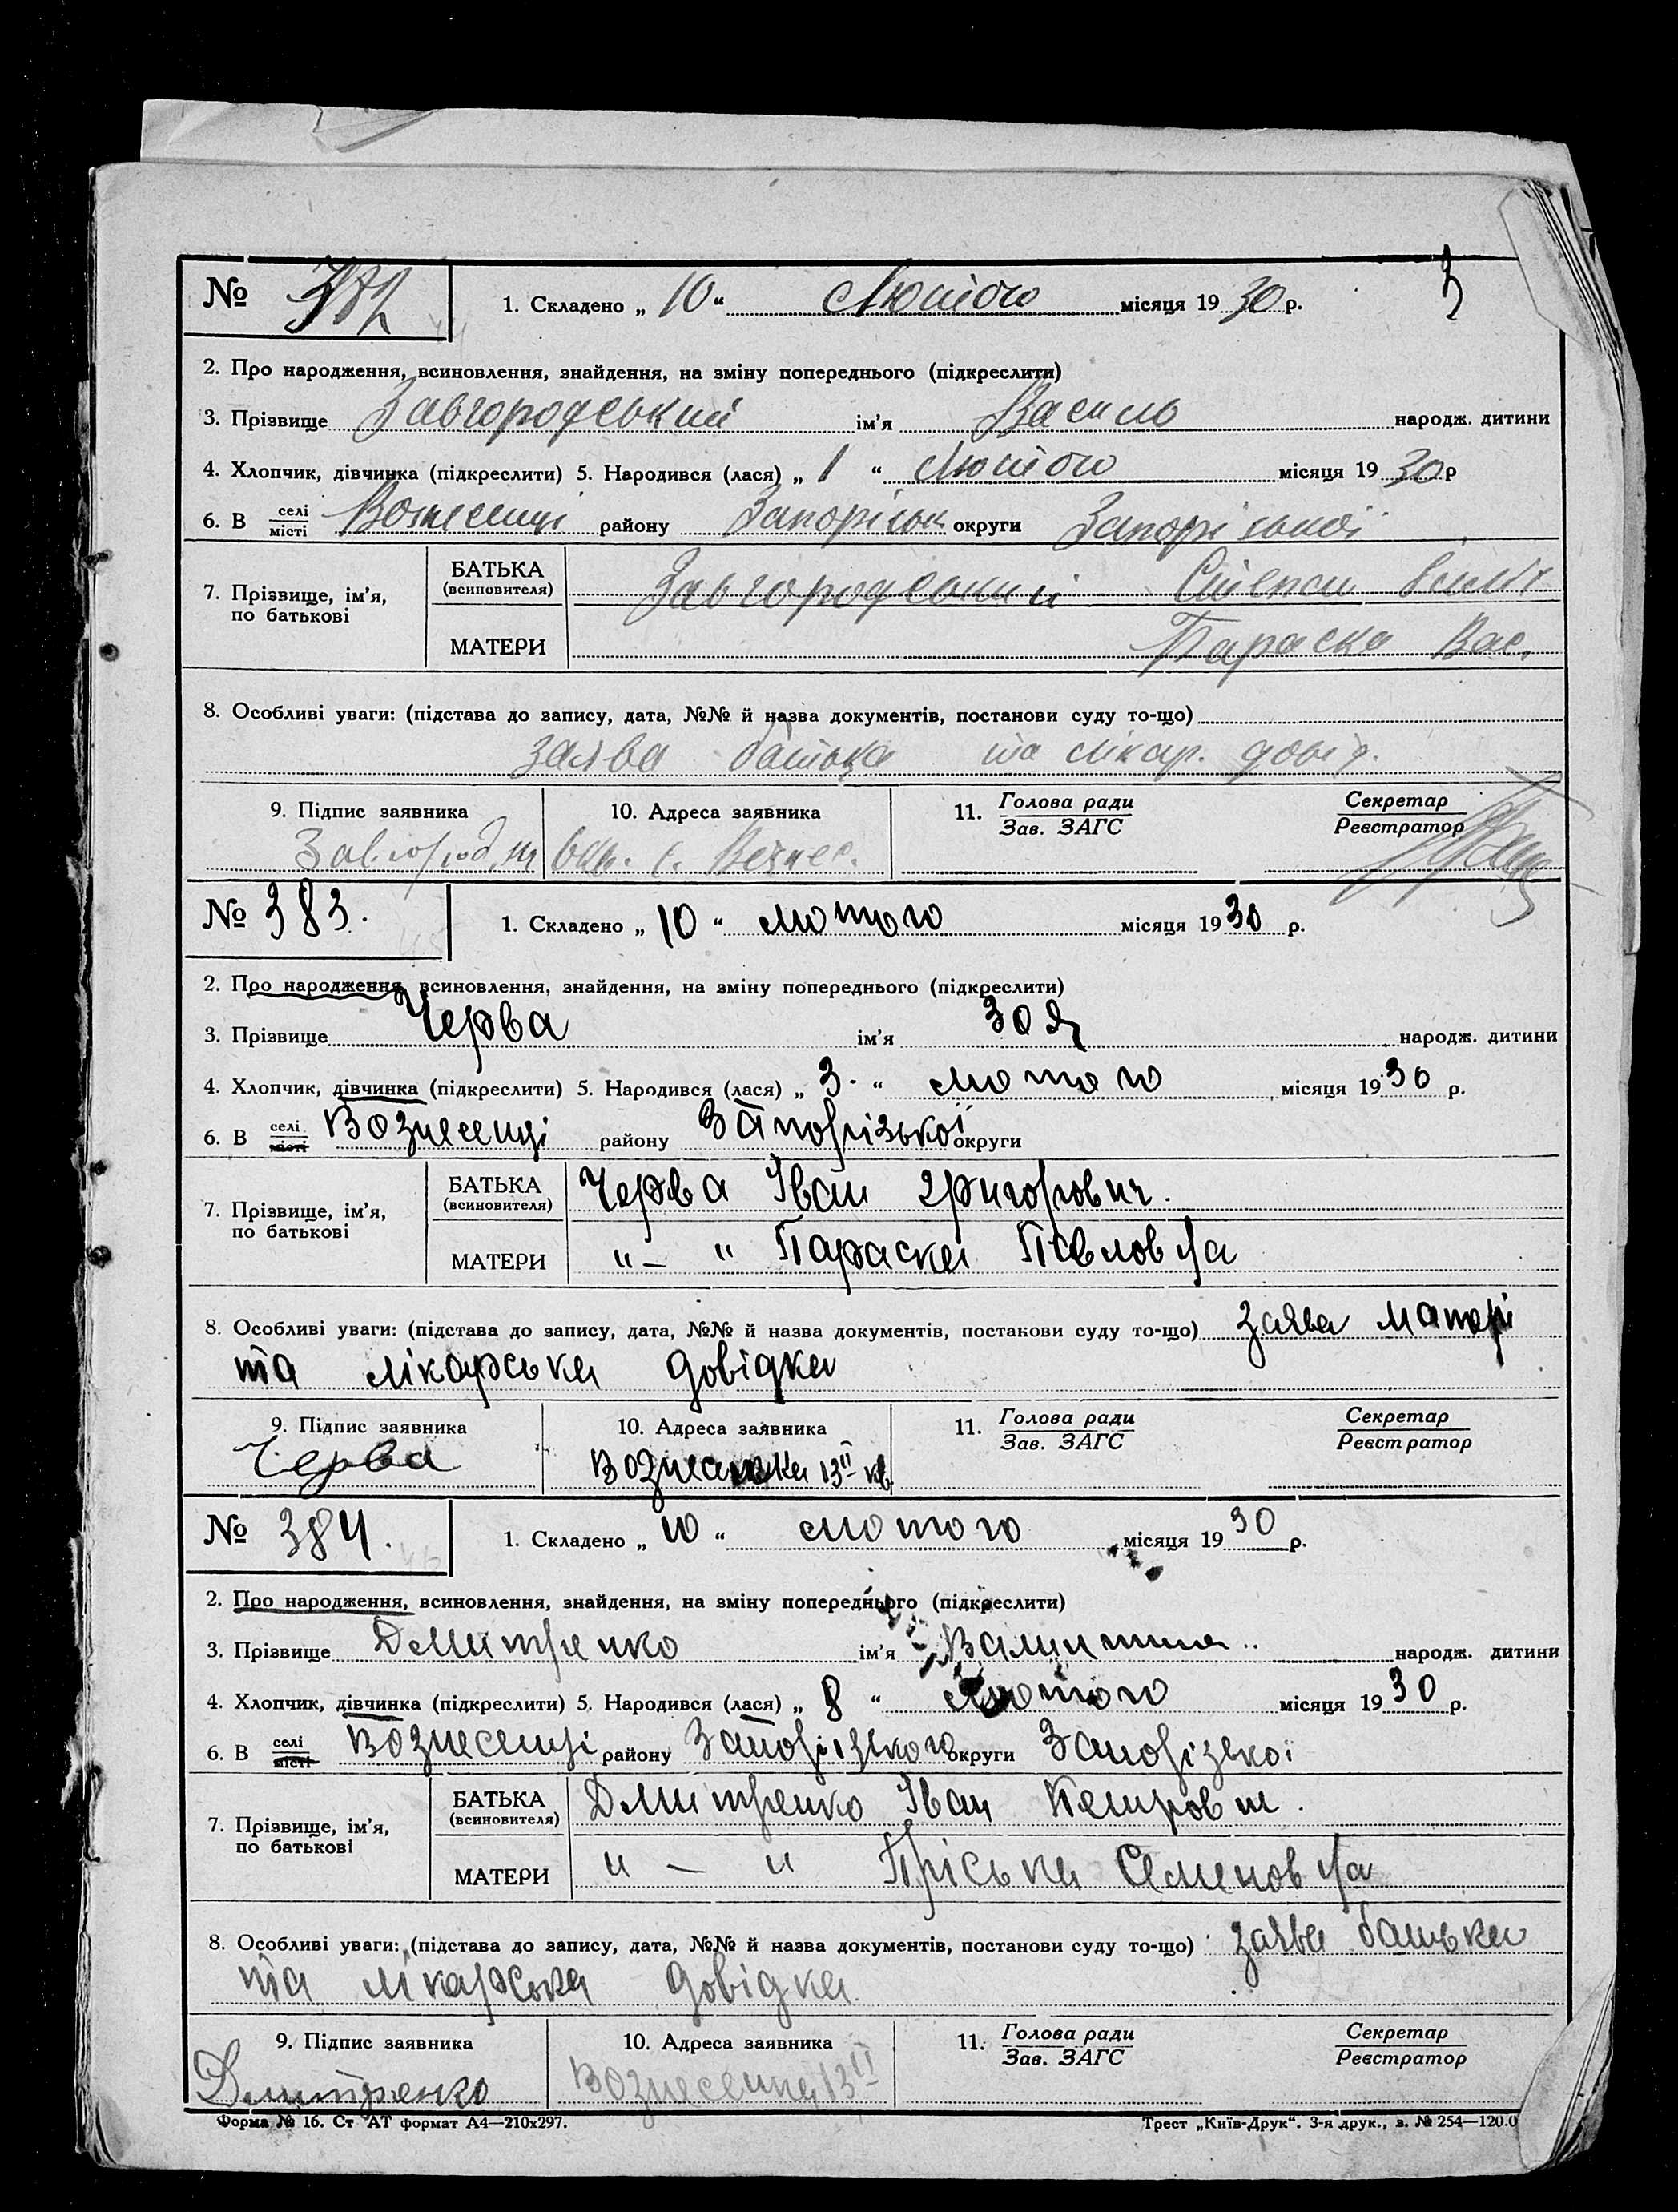 3
№ 382 1. Складено „ 10 “ Лютого місяця 1930 р.
2. Про народження, всиновлення, знайдення, на зміну попереднього (підкреслити)
3. Прізвище Завгородський ім'я Василь народж. дитини
4. Хлопчик, дівчинка (підкреслити) 5. Народився (лася) „ 1 “ Лютого місяця 1930 р
6. В селі місті Вознесенці району Запорізьк округи Запорізької
7. Прізвище, ім'я, по батькові
БАТЬКА (всиновителя) Завгородський Степан
МАТЕРИ Параска Вас.
8. Особливі уваги: (підстава до запису, дата, №№ й назва документів, постанови суду то-що)
заява батька та лікар. довід.
9. Підпис заявника 10. Адреса заявника 11. Голова ради Зав. ЗАГС Секретар Реєстратор
с. Вознес.
№ 383. 1. Складено „ 10 “ лютого місяця 1930 р.
2. Про народження, всиновлення, знайдення, на зміну попереднього (підкреслити)
3. Прізвище Черва ім'я Зоя народж. дитини
4. Хлопчик, дівчинка (підкреслити) 5. Народився (лася) „ 3. “ лютого місяця 1930 р.
6. В селі місті Вознесенці району Запорізької округи
7. Прізвище, ім'я, по батькові
БАТЬКА (всиновителя) Черва Іван Григорович.
МАТЕРИ "—" Параска Павловна
8. Особливі уваги: (підстава до запису, дата, №№ й назва документів, постанови суду то-що) заява матері
та лікарська довідка
9. Підпис заявника 10. Адреса заявника 11. Голова ради Зав. ЗАГС Секретар Реєстратор
Черва Вознесенка 13 II кв.
№ 384. 1. Складено „ 10 “ лютого місяця 1930 р.
2. Про народження, всиновлення, знайдення, на зміну попереднього (підкреслити)
3. Прізвище Дмитренко ім'я Валентина народж. дитини
4. Хлопчик, дівчинка (підкреслити) 5. Народився (лася) „ 8 “ Лютого місяця 1930 р.
6. В селі місті Вознесенці району Запорізького округи Запорізької
7. Прізвище, ім'я, по батькові
БАТЬКА (всиновителя) Дмитренко Іван Петрович.
МАТЕРИ "—" Пріська Семеновна
8. Особливі уваги: (підстава до запису, дата, №№ й назва документів, постанови суду то-що) заява батька
та лікарська довідка.
9. Підпис заявника 10. Адреса заявника 11. Голова ради Зав. ЗАГС Секретар Реєстратор
Дмитренко Вознесенка 13 II
Форма № 16. Ст АТ формат А4—210х297. Трест „Київ-Друк“. 3-я друк., з. № 254—120.0